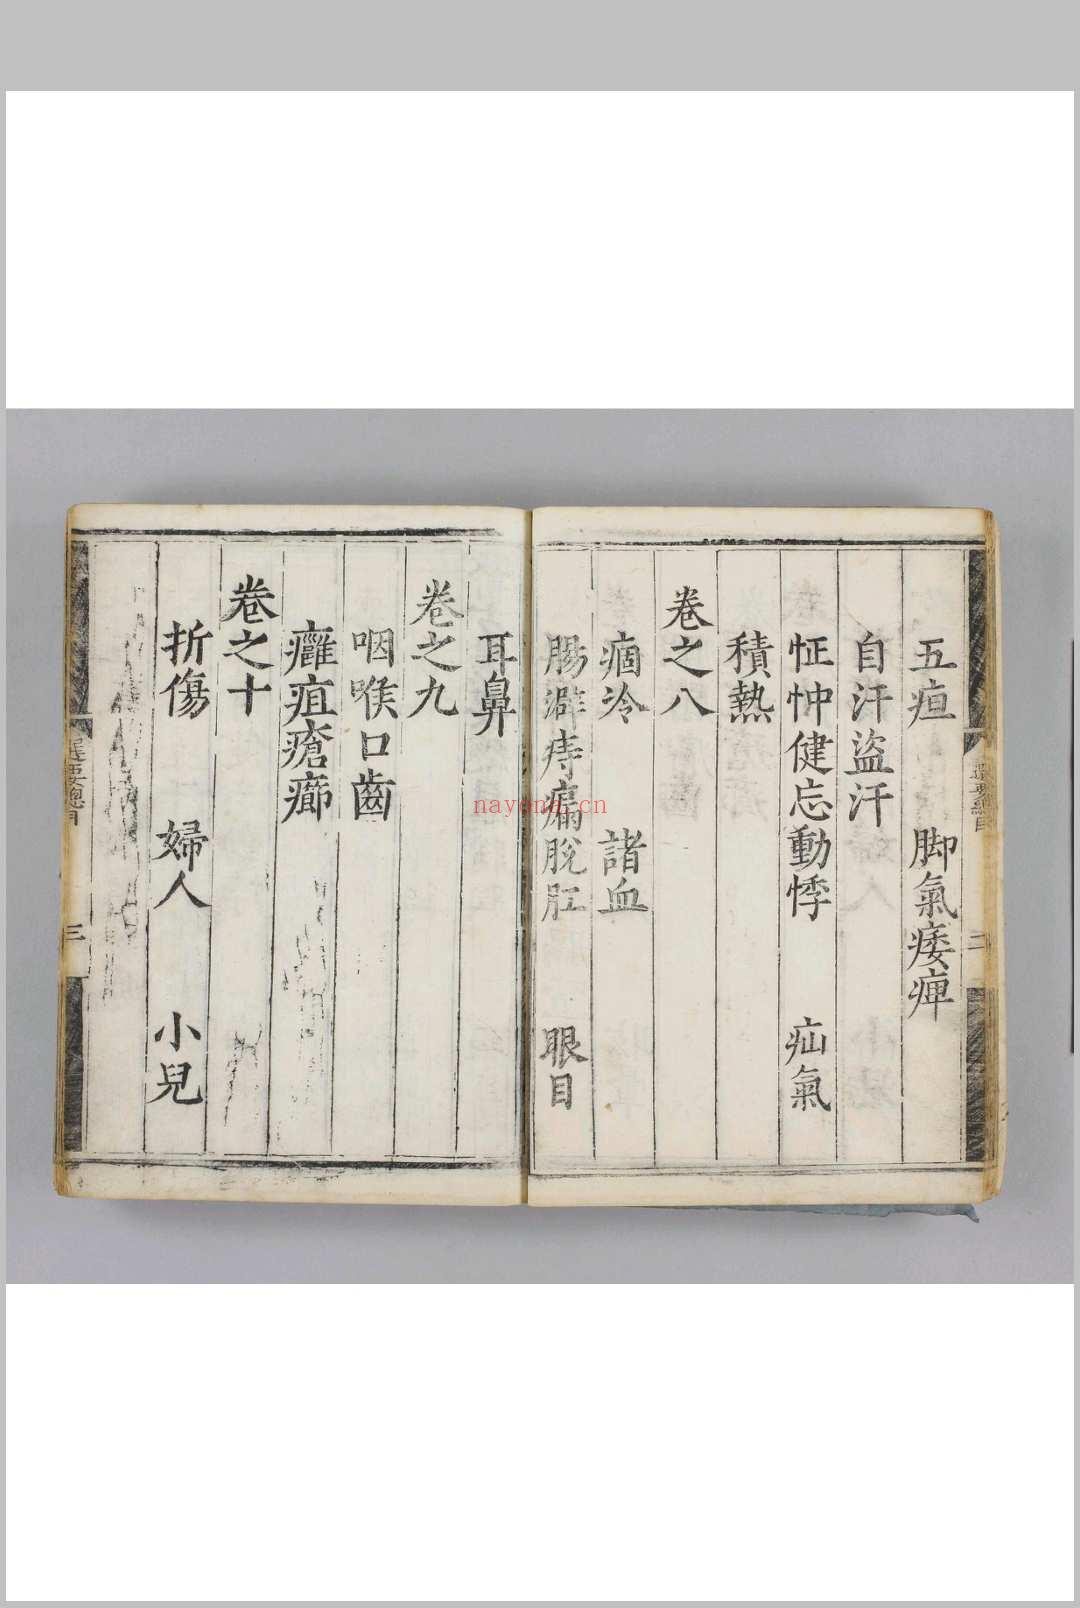 五疸 脚氣痿痺
自汗盜汗
怔忡健忘動悸 疝氣
積熱
卷之八
痼冷 諸血
腸澼痔漏脫肛 眼目
耳鼻
卷之九
咽喉口齒
癰疽瘡癤
卷之十
折傷 婦人 小兒
選要總目
二
選要總目
三
nayona.cn